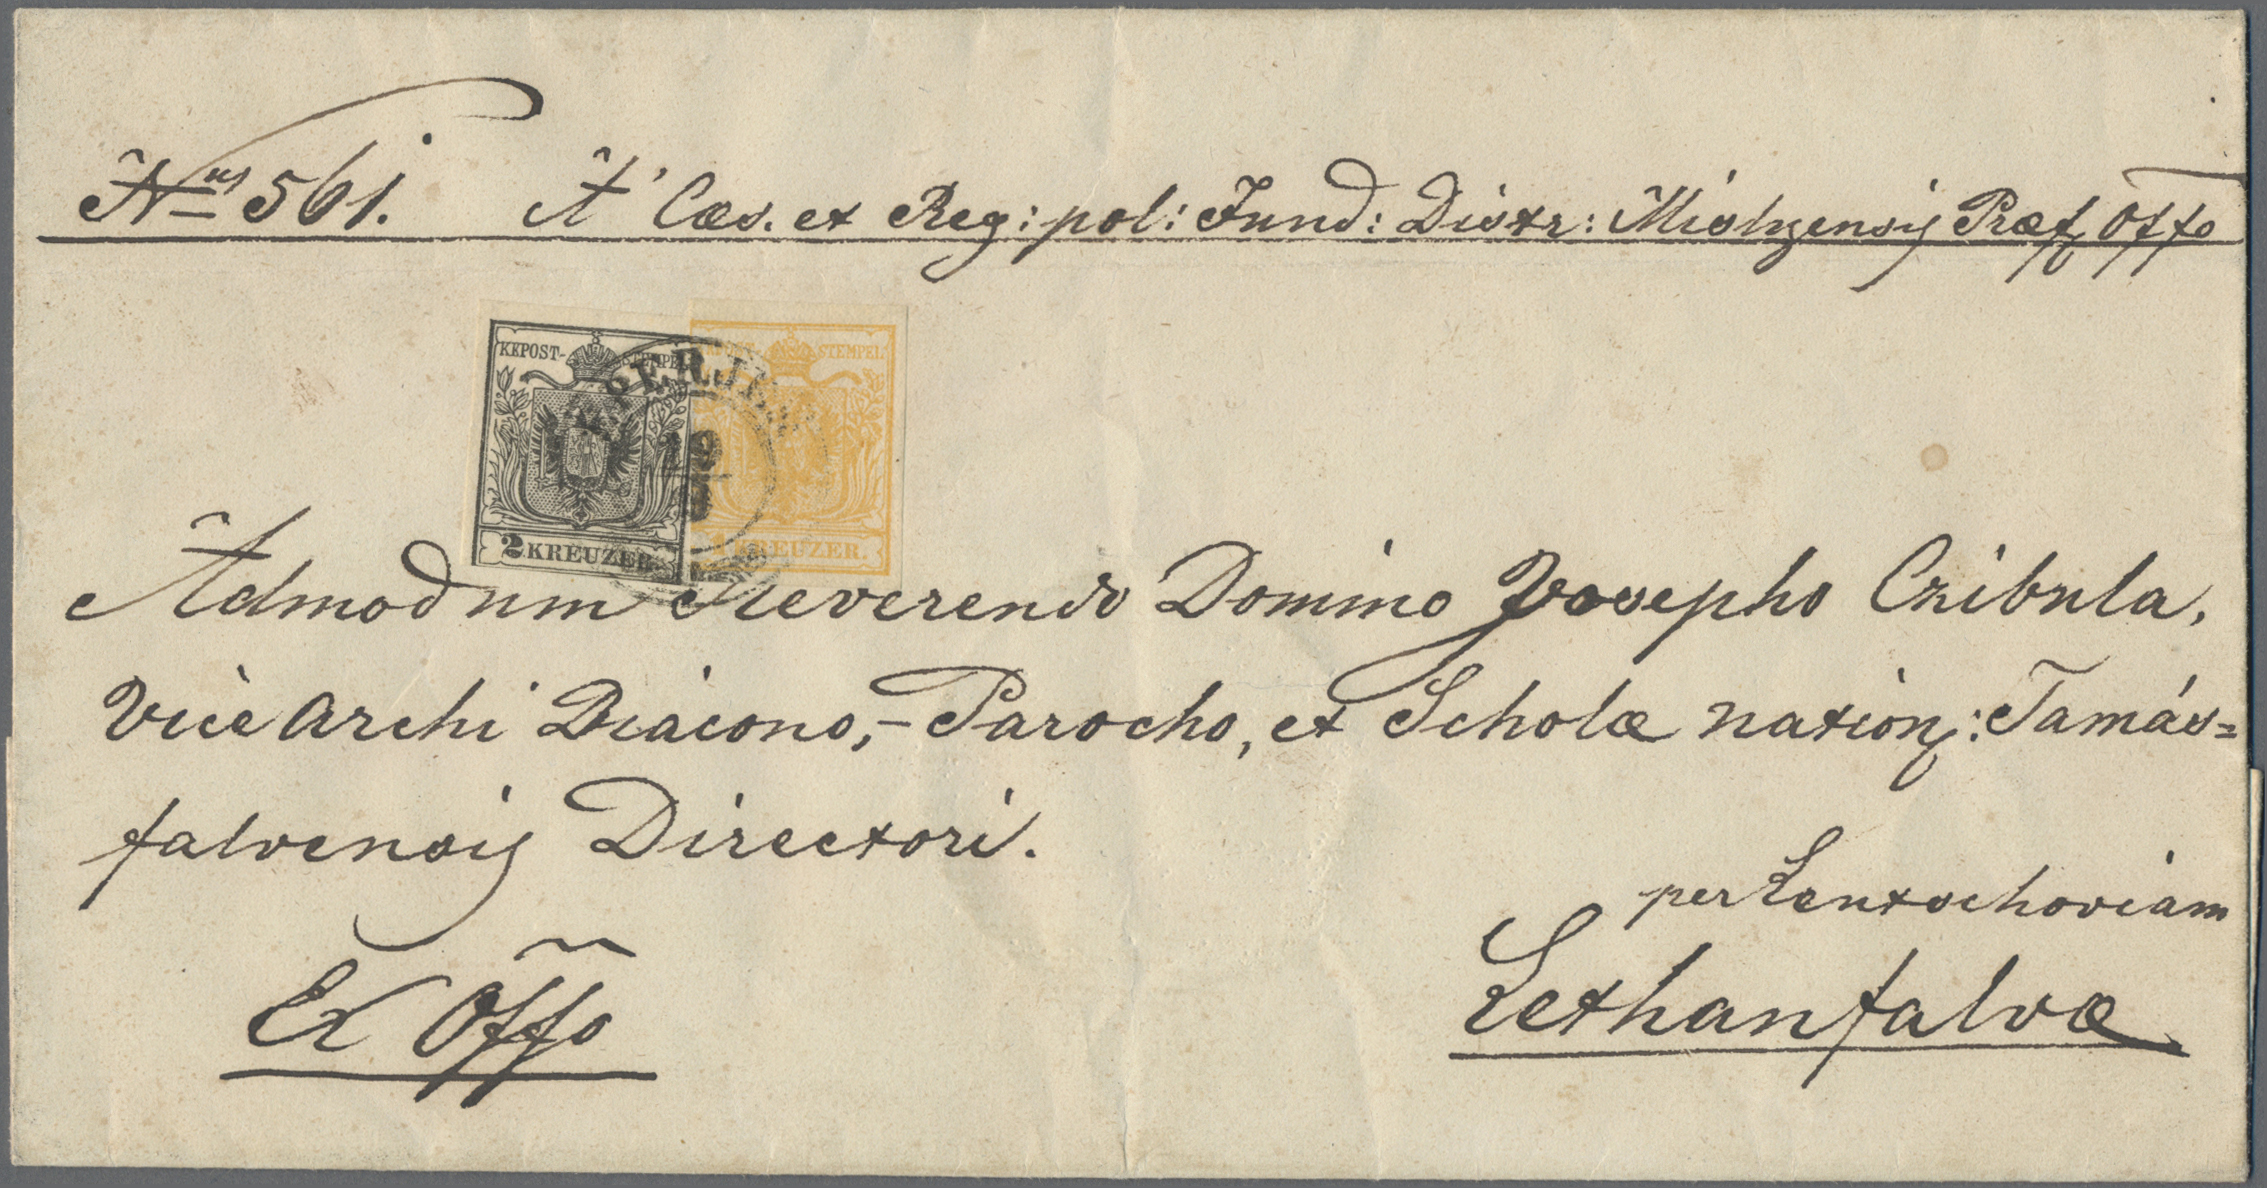 Nus 561. A' Cæs. et Reg: pol: Fund: Distr: Mislyensis Præf Offo
KKPOST- STEMPEL KKPOST- STEMPEL
EPERJES
19
2 KREUZER. 1 KREUZER.
Admodum Reverendo Domino Josepho Czibula,
Vice Archi Diacono,- Parocho, et Scholæ nation: Tamás=
falvensis Directori.
per Leutschoviam
Ex Offo
Lethanfalvæ